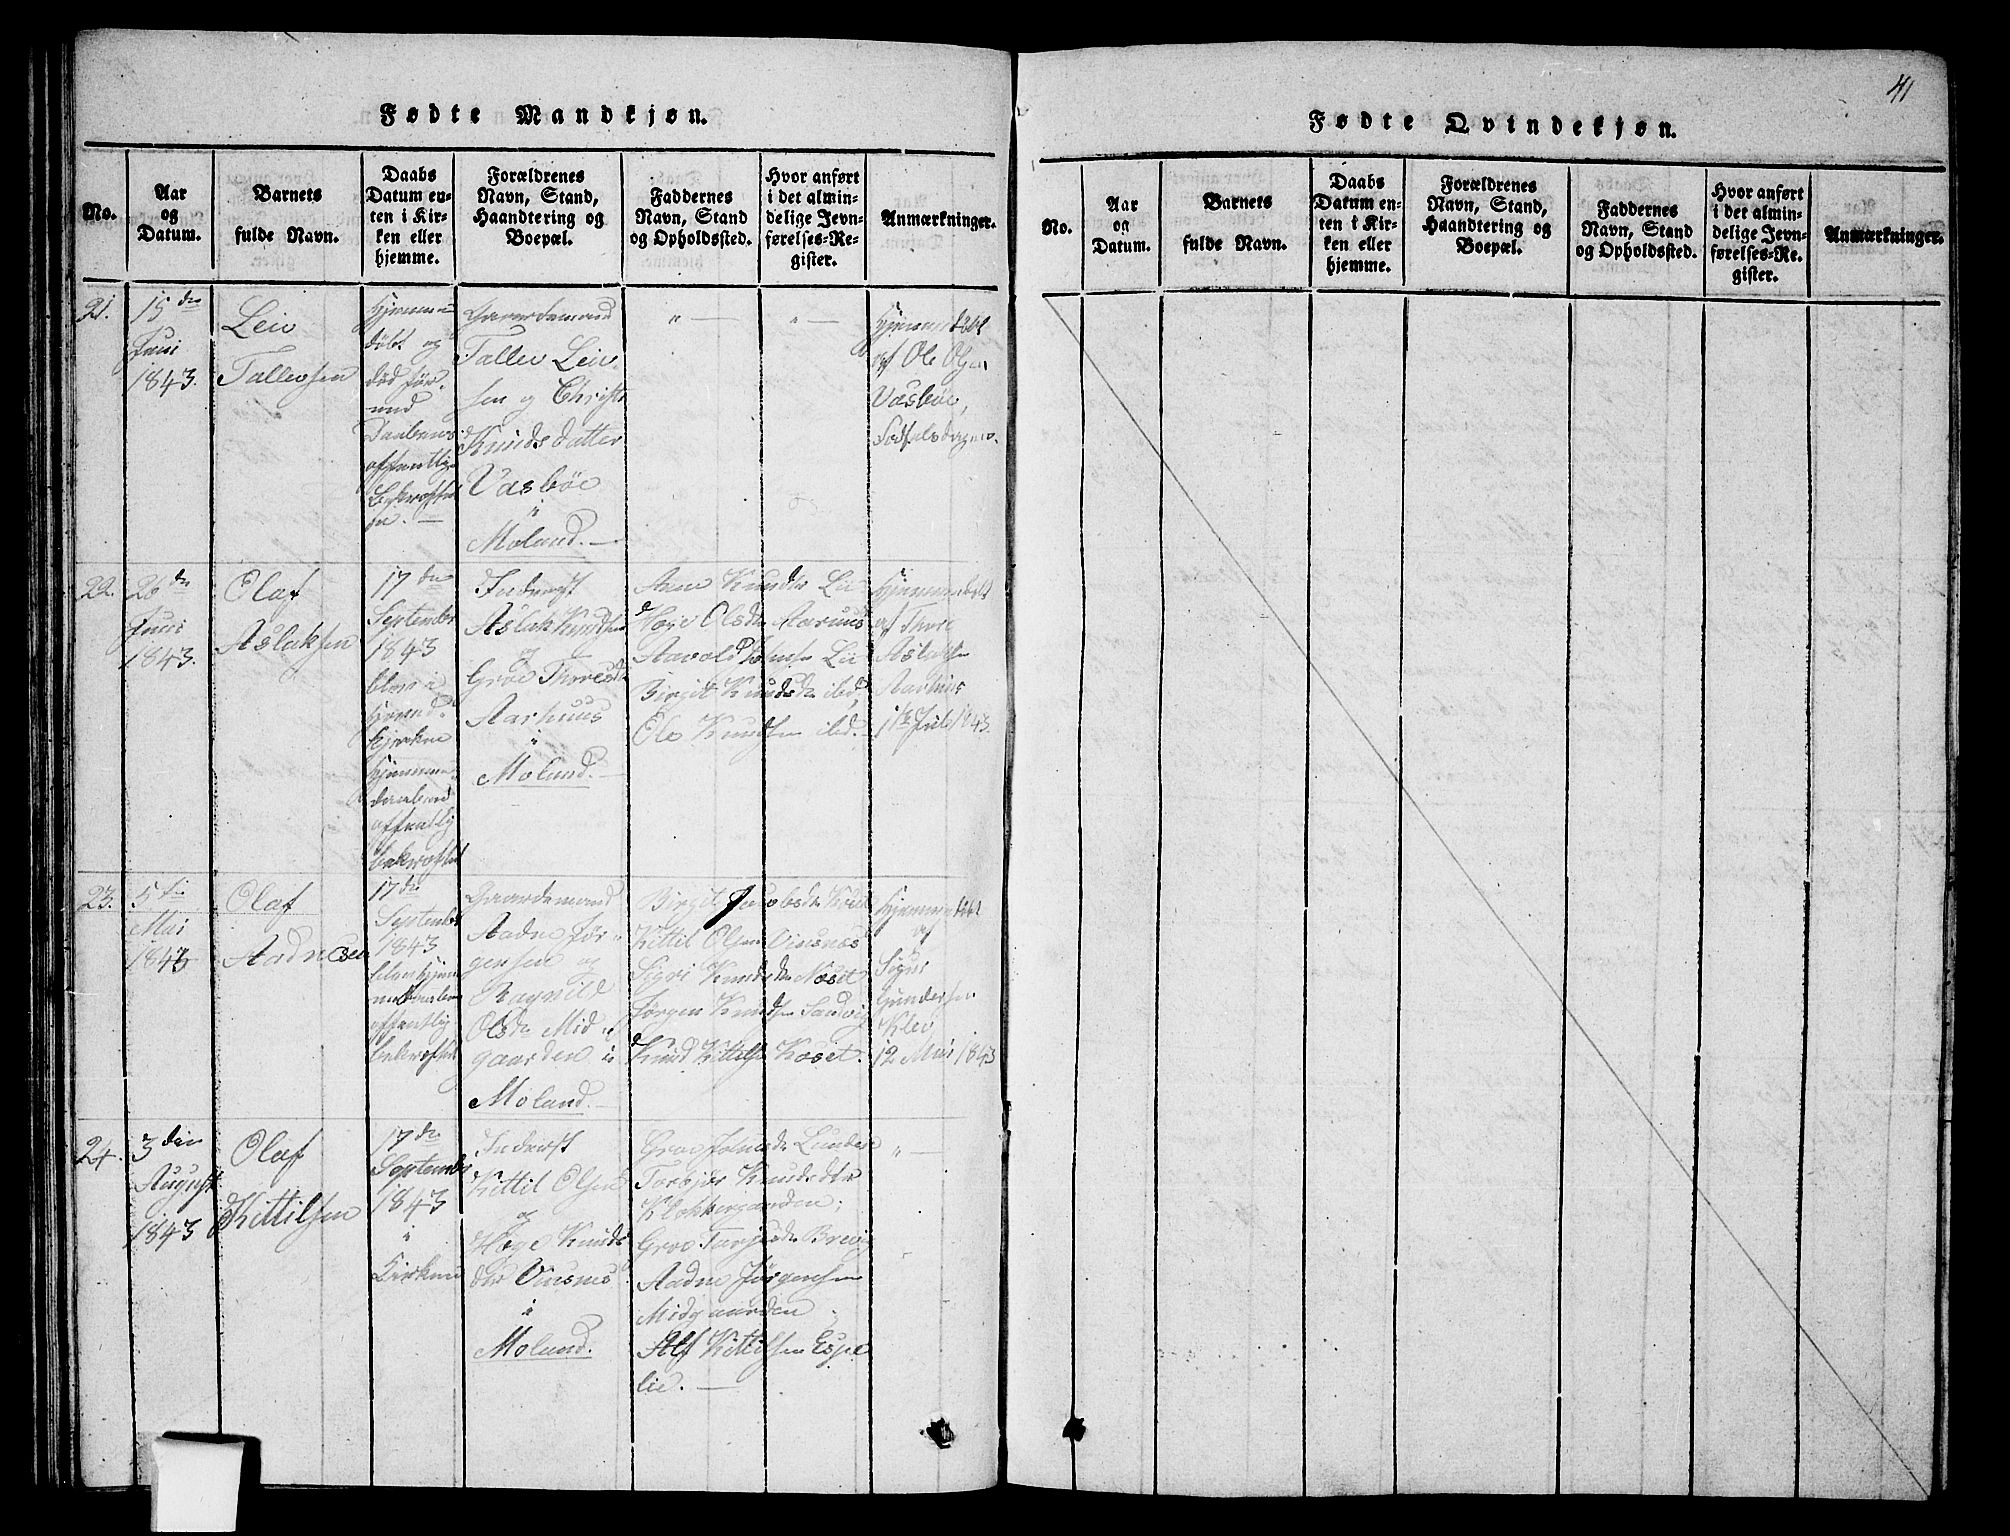 Fødte Mandkjøn.
No.
Aar
og
Datum.
Barnets
fulde Navn.
Daabs
Datum en-
ten i Kir-
ken eller
hjemme.
Forældrenes
Navn, Stand,
Haandtering og
Boepæl.
Faddernes
Navn, Stand
og Opholdssted.
Hvor anført
i det almin-
delige Jevn-
førelses-Re-
gister.
Anmærkninger.
21.
15de
Juni
1843.
Leiv
Tallevsen
Hjemme-
døbt og
død før-
end
Daabens
offentlig
Bekræftel
se. —
Gaardemand
Tallev Leiv-
sen og Christi
Knuds datter
Vasbøe
i
Moland. —
" —
" —
Hjemmedøbt
af Ole Olsen
Vasbøe,
Fødselsdagen.
22.
26de
Juni
1843.
Olaf
Aslaksen
17de
September
1843
blev i
Hoved-
kjerken
Hjemme-
daaben
offentlig
bekræftet
Inderst
Aslak Knudsen
og
Groe Thoresdr
Aarhuus
i
Moland. —
Anne Knudsdr Lie
Høge Olsdr Aarhuus
Aavold Johnsen Lie
Birgit Knudsdr ibid.
Ole Knudsen ibid. —
Hjemmedøbt
af Thore
Aslaksen
Aarhuus
1ste Juli 1843.
23.
5te
Mai
1843
Olaf
Aadnesen
17de
September
1843
blev hjem
medaaben
offentlig
bekræftet
Gaardemand
Aadne Jør-
gensen og
Ragnild
Olsdr Mid-
gaarden i
Moland. —
Birgit Jacobsdr
Kittil Olsen Vinsnæs
Sigri Knudsdr Næset
Jørgen Knudsen Sandvig
Knud Kittilsen Næset.
Hjemmedøbt
af
Sigur
Gundersen
Klev
12 Mai 1843
24.
3die
August
1843
Olaf
Kittilsen
17de
September
1843
i
Kirken
Inderst
Kittil Olsen
og
Høge Knuds
dtr Vinsnæs
i
Moland.
Groe Johnsdr Lunden
Torbjør Knudsdtr
Klokkergaarden;
Groe Tarjeisdr Brevig
Aadne Jørgensen
Midgaarden
Alf Kittilsen Espe
lie. —
" —
41
Fødte Qvindekjøn.
No.
Aar
og
Datum.
Barnets
fulde Navn.
Daabs
Datum en-
ten i Kir-
ken eller
hjemme.
Forældrenes
Navn, Stand,
Haandtering og
Boepæl.
Faddernes
Navn, Stand
og Opholdssted.
Hvor anført
i det almin-
delige Jevn-
førelses-Re-
gister.
Anmærkninger.